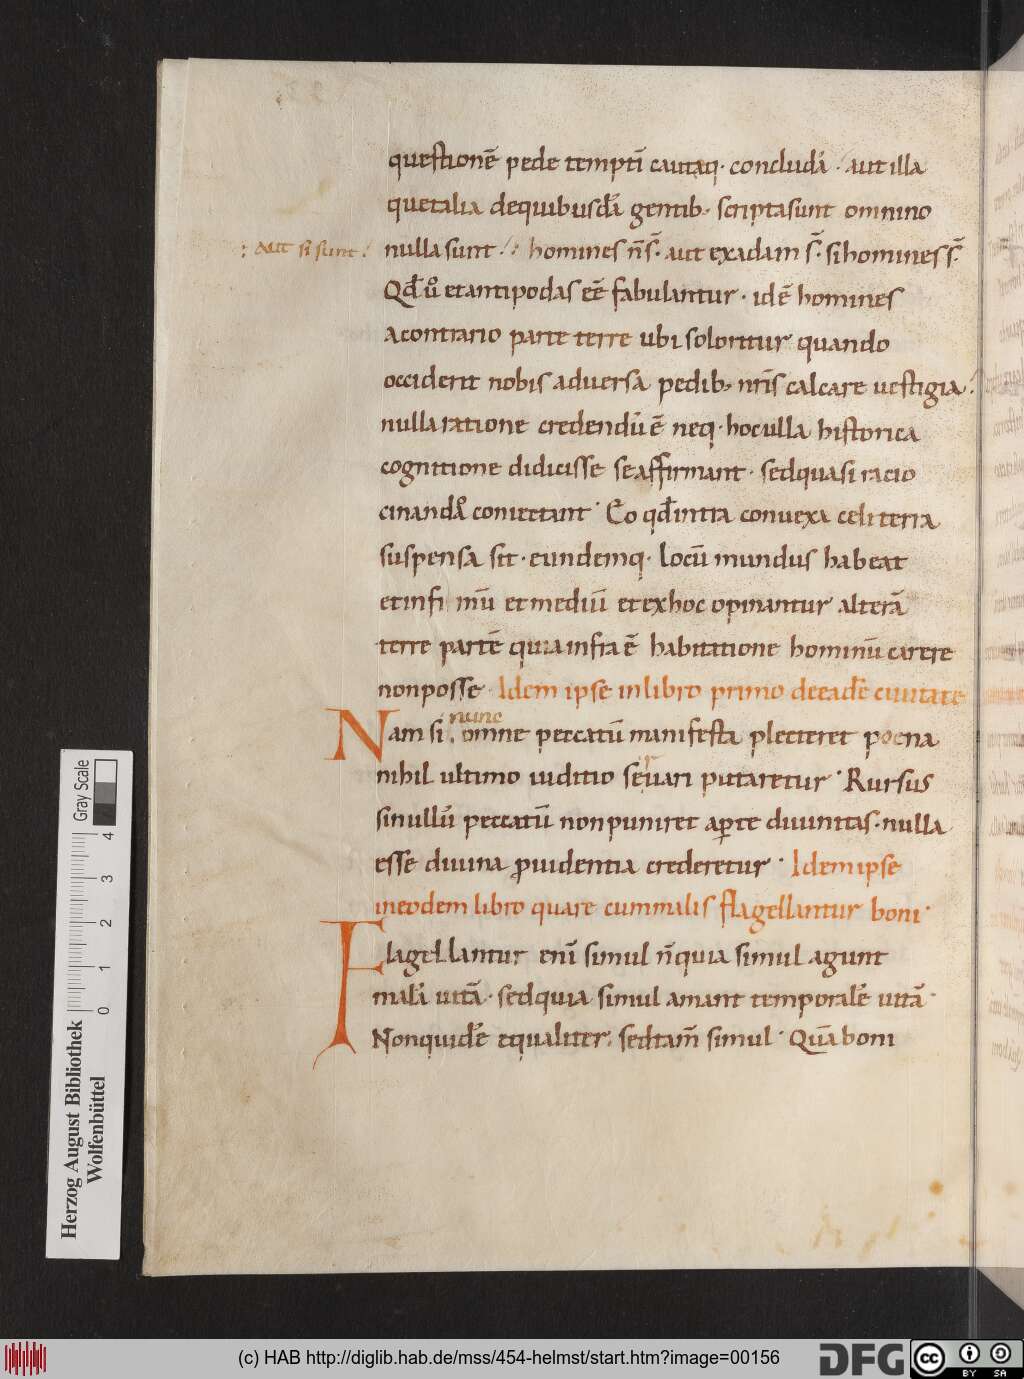 questionē pede temptī cautaq· concludā· aut illa
quetalia dequibusdā gentib; scripta sunt omnino
: aut si sunt.
nulla sunt·/: homines n̄ s̄· aut exadam s̄· si homines s̄·
Qd̄ ů et antipodas eē fabulantur· id ē homines
a contrario parte terre ubi sol oritur quando
occiderit nobis aduersa pedib; nrīs calcare uestigia·
nulla ratione credendū ē neq· hoc ulla historica
cognitione didicisse se affirmant· sed quasi racio
cinando coniectant· Eo qd̄ intra conuexa celi terra
suspensa sit· eundemq· locū mundus habeat
et infimū et mediū et ex hoc opinantur alterā
terre partē quia infra ē habitatione hominū carere
non posse· Idem ipse in libro primo de eadē ciuitate
nunc
Nam si omne peccatū manifesta plecteret poena
nihil ultimo iuditio seruari putaretur· Rursus
si nullū peccatū non puniret aperte diuinitas· nulla
esse diuina puidentia crederetur· Idem ipse
in eodem libro quare cum malis flagellantur boni·
Flagellantur enī simul n̄ quia simul agunt
malā uitā· sed quia simul amant temporalē uitā·
Non quidē equaliter; sed tam̄ simul· Quā boni
Gray Scale
4
3
2
1
0
Herzog August Bibliothek
Wolfenbüttel
(c) HAB http://diglib.hab.de/mss/454-helmst/start.htm?image=00156
DFG
cc
BY SA